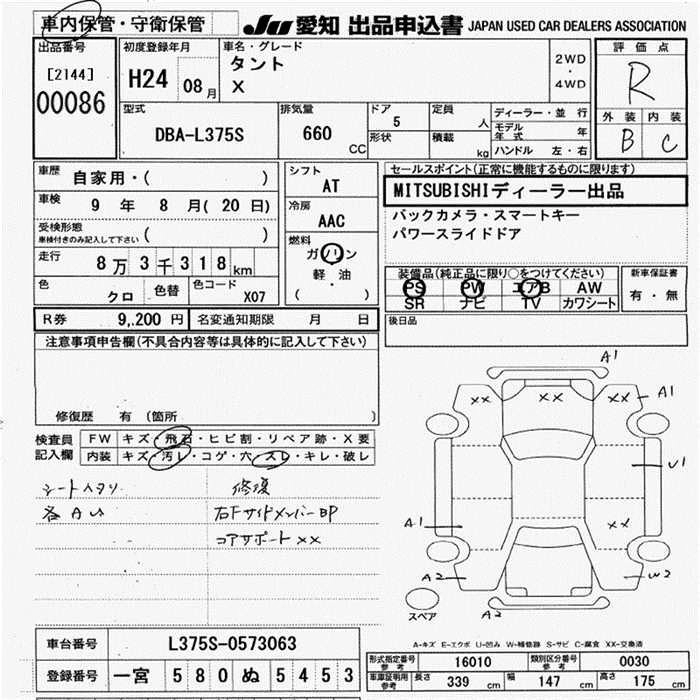 車内保管・守衛保管
JU 愛知 出品申込書 JAPAN USED CAR DEALERS ASSOCIATION
出品番号
[2144]
00086
初度登録年月
H24 08月
車名・グレード
タント
X
2WD
・
4WD
評価点
R
外装 内装
B C
型式
DBA-L375S
排気量
660 CC
ドア 5
形状
定員 人
積載 kg
ディーラー・並行
モデル年式 年
ハンドル 左・右
車歴 自家用・( )
車検 9 年 8 月( 20 日)
受検形態
車検付きのみ記入して下さい ( )
走行 8万3千318km
色 クロ 色替 色コード X07
シフト
AT
冷房
AAC
燃料
ガソリン
軽・油
( )
セールスポイント(正常に機能するものに限ります)
MITSUBISHIディーラー出品
バックカメラ・スマートキー
パワースライドドア
装備品(純正品に限り○をつけてください)
PS PW エアB AW
SR ナビ TV カワシート
新車保証書
有・無
後日品
R券 9,200 円 名変通知期限 月 日
注意事項申告欄(不具合内容等は具体的に記入して下さい)
修復歴 有 (箇所 )
検査員記入欄
FW キズ・飛石・ヒビ割・リペア跡・X要
内装 キズ・汚レ・コゲ・穴・スレ・キレ・破レ
シートヘタリ
各AU
修復
右FサイドメンバーEP
コアサポートXX
A1
XX XX XX A1
U1
A1 XX
A2 W2
A2
スペア
A-キズ E-エクボ U-凹み W-補修跡 S-サビ C-腐食 XX-交換済
車台番号 L375S-0573063
登録番号 一宮 580 ぬ 5453
形式指定番号参考 16010 類別区分番号参考 0030
車庫証明用参考 長さ 339 cm 幅 147 cm 高さ 175 cm